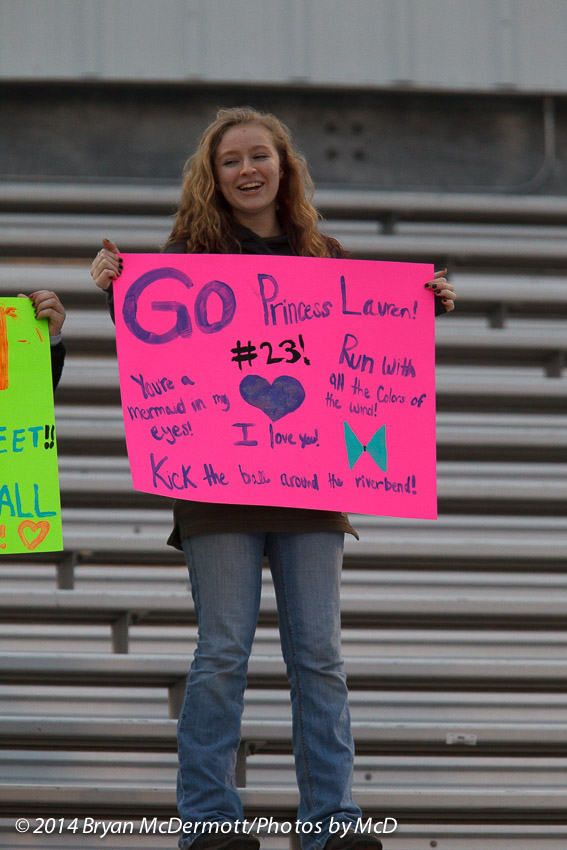 GO Princess Lauren!
#23!
You're a
mermaid in my
eyes!
I love you!
Run with
all the Colors of
the wind!
Kick the ball around the riverbend!
EET!!
ALL
!
© 2014 Bryan McDermott/Photos by McD